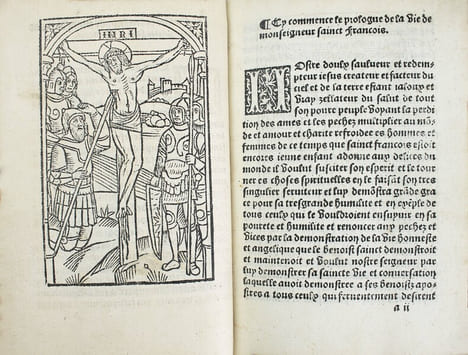 INRI
¶Cy commence le prologue de la vie de
monseigneur sainct Francois.
NOstre doulx saulueur et redemp-
pteur iesus createur et facteur du
ciel et de la terre estant ialoux et
vray zellateur du salut de tout
son poure peuple voyant la perdition
des ames et les pechez multiplier au mõ-
de et amour et charite refroidee es hommes et
femmes de ce temps que sainct francois estoit
encores ieune enfant adonne aux delices du
monde il voulut susciter son esperit et le tour
ner es choses spirituelles en le faisãt son tres
singulier seruiteur et luy demõstra grãde grace
pour sa tresgrande humilite et en exẽple de
tous ceulx qui le vouldroient ensuyuir en sa
pourete et humilite et renoncer aux pechez et
vices par la demonstration de la vie honneste
et angelique que le benoist sainct demonstroit
et maintenoit et voulut nostre seigneur par
luy demonstrer sa saincte vie et conuersation
laquelle auoit demonstre a ses benoistz apo-
stres a tous ceulx qui feruentement desirent
a ii